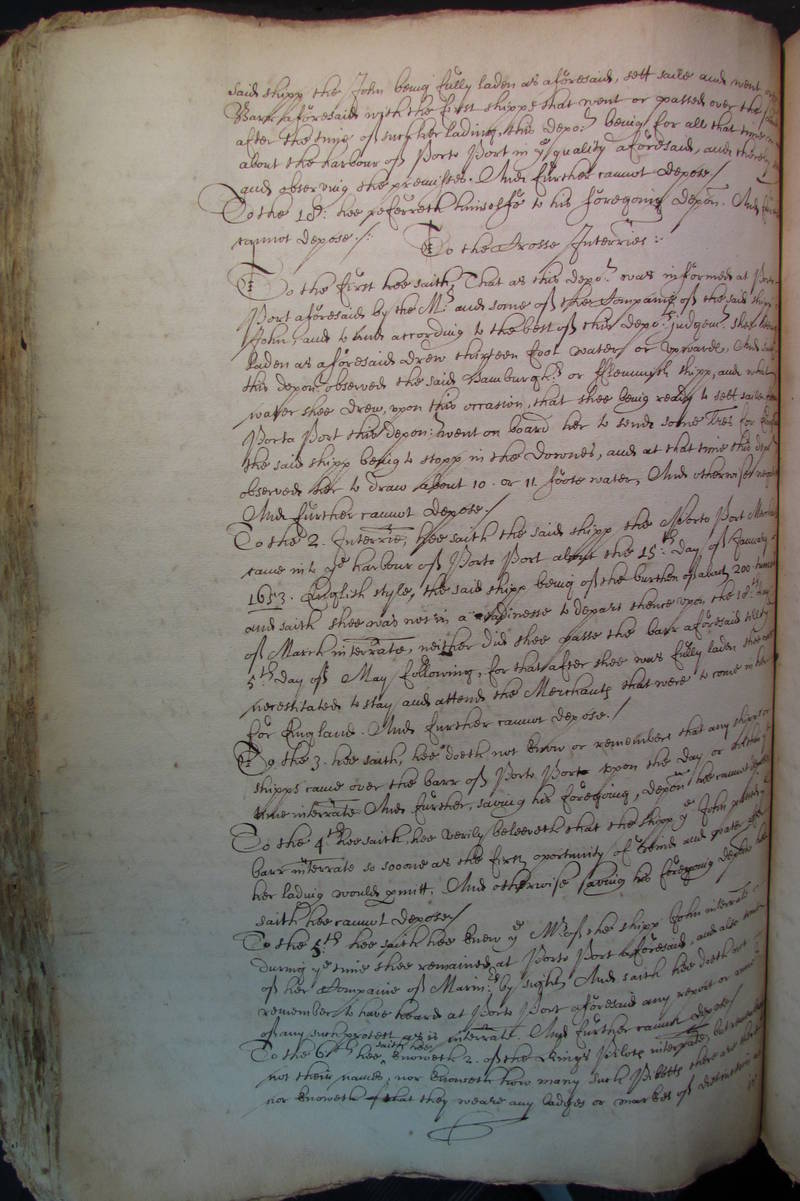 said shipp the John being fully laden as aforesaid, sett saile and went over
Barr aforesaid with the first shipps that went or passed over the same
after the time of such her lading, this depo:t being for all that time in
about the harbour of Porto Port in ye quality aforesaid, and thereby
and observing the premisses. And further cannot depose /
To the 10th: hee referreth himselfe to his foregoing depon. And further
cannot depose /:
To the Crosse Interries:
To the first hee saith, That as this depo:t was informed at Porto
Port aforesaid by the Mr. and some of the Companie of the said shipp
John, and to and according to the best of this depo:ts judgemt. shee being
laden as aforesaid drew thirteen foot water or upwards, And saith
this depont observed the said Hamburgh:r or Flemmish shipp, and what
water shee drew, upon this occasion, that shee being ready to sett saile from
Porta Port this depon:t went on board her to send some for
the said shipp being to stopp in the Downes, and at that time this dept
observed her to draw about 10. or 11 foote water, And otherwise
And further cannot depose /
To the 2. Interrie, hee saith the said shipp the Porto Port Merchant
came into ye harbour of Porto Port about the 15:th day of January
1653. English style, the said shipp being of the burthen of about 200 tonnes
and saith shee was not in a readinesse to depart thence upon the 18:th day
of March interrate, neither did shee passe the barr aforesaid till ye
5:th day of May following, for that after shee was fully laden shee was
necessitated to stay and attend the Merchants that were to come in her
for England. And further cannot depose. /
To the 3. hee saith, hee doeth not know or remember that any shipp or
shipps came over the barr of Porto Porto upon the day or
time interrate And further, saving his foregoing depon hee cannot depose
To the 4th hee saith, hee verily beleeveth that the shipp ye John passed ye
barr interrate so soone as the first oportunity of wind and
her lading would pmitt. And otherwise saving his foregoing depon hee
saith hee cannot depose /
To the 5:th hee saith hee knew ye Mr of the shipp John interrate
during ye time shee remained at Porto Port aforesaid, and also some
of her Companie of Marin:rs by sight, And saith hee doeth not
remember to have heard at Porto Port aforesaid any report or
of any such protest as is interrate. And further cannot depose /
To the 6th hee saith hee knoweth 2. of the Kings Pilots interrate, but remembers
not their names, nor knoweth how many such Pilotts there are
nor knoweth that they weare any badges or markes of distinction